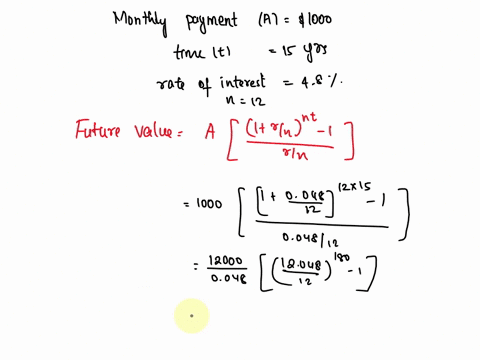 Monthly payment (A) = $1000
time (t) = 15 yrs
rate of interest = 4.8 %.
n = 12
Future value = A [ ((1 + r/n)^nt - 1) / (r/n) ]
= 1000 [ ([1 + 0.048/12]^12×15 - 1) / (0.048/12) ]
= 12000/0.048 [ (12.048/12)^180 - 1 ]